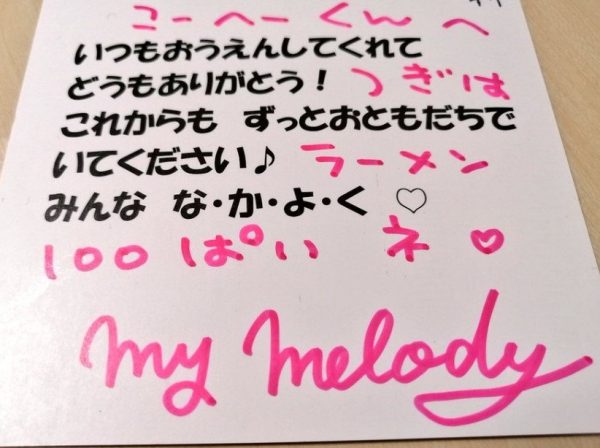 こーへーくんへ
いつもおうえんしてくれて
どうもありがとう! つぎは
これからも ずっとおともだちで
いてください♪ ラーメン
みんな な・か・よ・く ♡
100ぱい ネ ♡
my melody